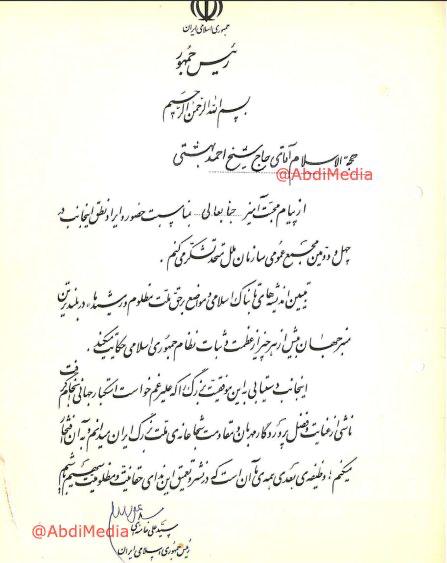 جمهوری اسلامی ایران
رئیس جمهور
بسم الله الرحمن الرحیم
حجة الاسلام آقای حاج شیخ احمد بهشتی
@AbdiMedia
از پیام محبت آمیز جنابعالی بمناسبت حضور و ایراد نطق اینجانب در
چهل و دومین مجمع عمومی سازمان ملل متحد تشکر می کنم .
تبیین اندیشه های تابناک اسلامی و مواضع بر حق ملت مظلوم و رشید ما، در بلندترین
منبر جهان بیش از هر چیز از عظمت و ثبات نظام جمهوری اسلامی حکایت میکند.
اینجانب دستیابی به این موفقیت بزرگ را که علیرغم خواست استکبار جهانی انجام گرفت
ناشی از عنایت و فضل پروردگار مهربان و مقاومت شجاعانه ی ملت بزرگ ایران میدانم و به آن افتخار
میکنم ؛ وظیفه ی بعدی همه ی ما آن است که در نشر و تعمیق این ندای حقانیت و مظلومیت سهیم باشیم
@AbdiMedia
سید علی خامنه ای
رئیس جمهوری اسلامی ایران